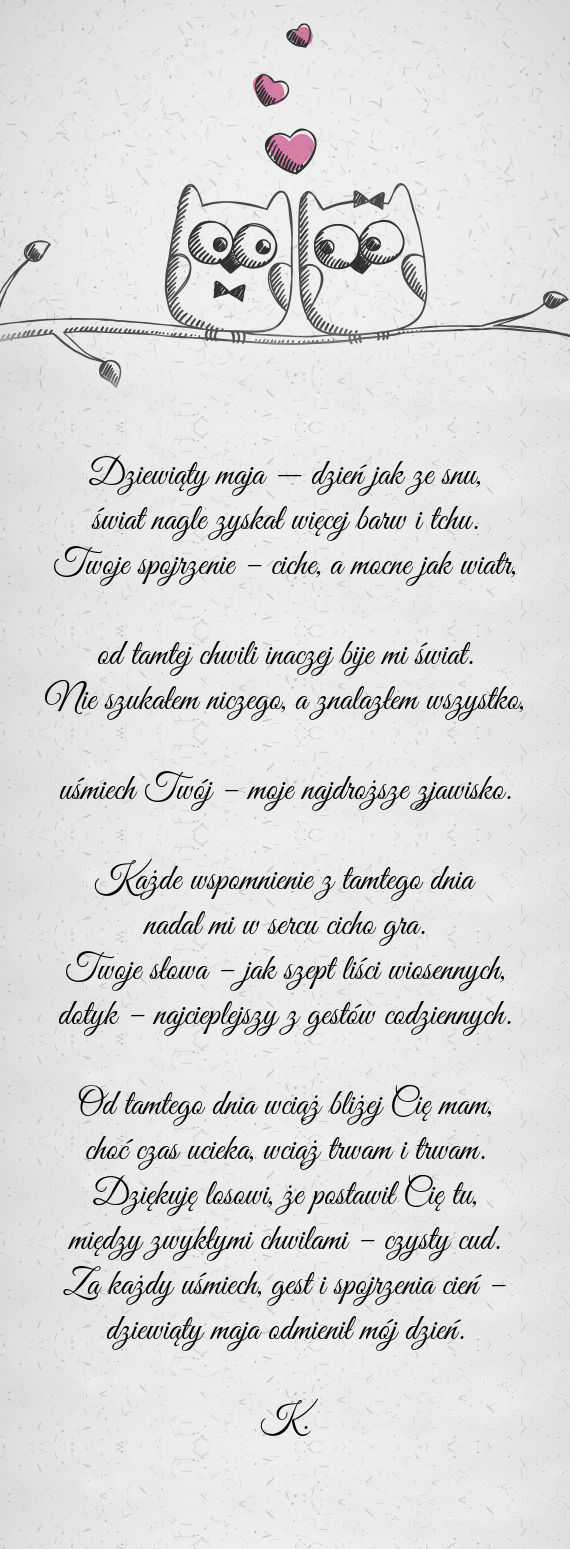 Dziewiąty maja — dzień jak ze snu,
świat nagle zyskał więcej barw i tchu.
Twoje spojrzenie – ciche, a mocne jak wiatr,
od tamtej chwili inaczej bije mi świat.
Nie szukałem niczego, a znalazłem wszystko,
uśmiech Twój – moje najdroższe zjawisko.
Każde wspomnienie z tamtego dnia
nadal mi w sercu cicho gra.
Twoje słowa – jak szept liści wiosennych,
dotyk – najcieplejszy z gestów codziennych.
Od tamtego dnia wciąż bliżej Cię mam,
choć czas ucieka, wciąż trwam i trwam.
Dziękuję losowi, że postawił Cię tu,
między zwykłymi chwilami – czysty cud.
Za każdy uśmiech, gest i spojrzenia cień –
dziewiąty maja odmienił mój dzień.
K.